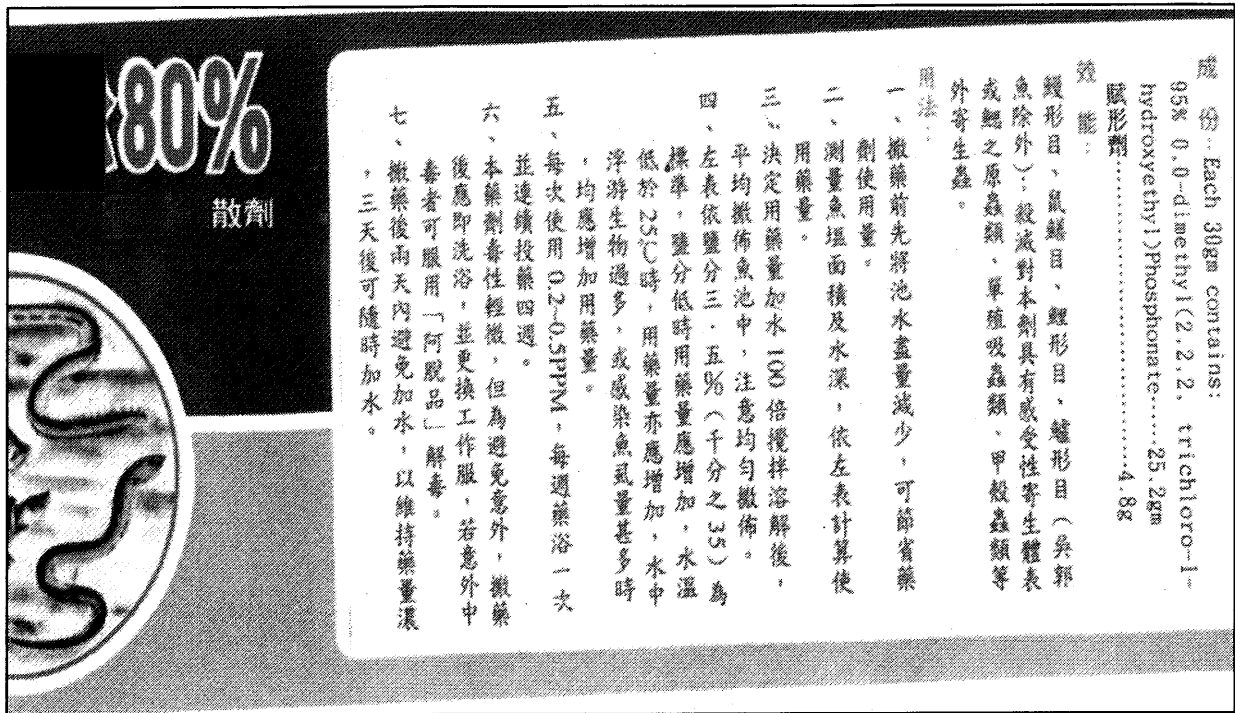 80%
散劑
成 份：Each 30gm contains:
95% 0,0-dimethyl(2,2,2, trichloro-1-
hydroxyethyl)Phosphonate......25.2gm
賦形劑..............................4.8g
效 能：
鰻形目、鼠鱚目、鯉形目、鱸形目（吳郭
魚除外）；殺滅對本劑具有感受性寄生體表
或鰓之原蟲類、單殖吸蟲類、甲殼蟲類等
外寄生蟲。
用法：
一、撒藥前先將池水盡量減少，可節省藥
劑使用量。
二、測量魚塭面積及水深，依左表計算使
用藥量。
三、決定用藥量加水 100 倍攪拌溶解後，
平均撒佈魚池中，注意均勻撒佈。
四、左表依鹽分三．五％（千分之 35）為
標準，鹽分低時用藥量應增加，水溫
低於 25℃時，用藥量亦應增加，水中
浮游生物過多，或感染魚虱量甚多時
，均應增加用藥量。
五、每次使用 0.2~0.5PPM，每週藥浴一次
並連續投藥四週。
六、本藥劑毒性輕微，但為避免意外，撒藥
後應即洗浴，並更換工作服，若意外中
毒者可服用「阿脫品」解毒。
七、撒藥後兩天內避免加水，以維持藥量濃
，三天後可隨時加水。